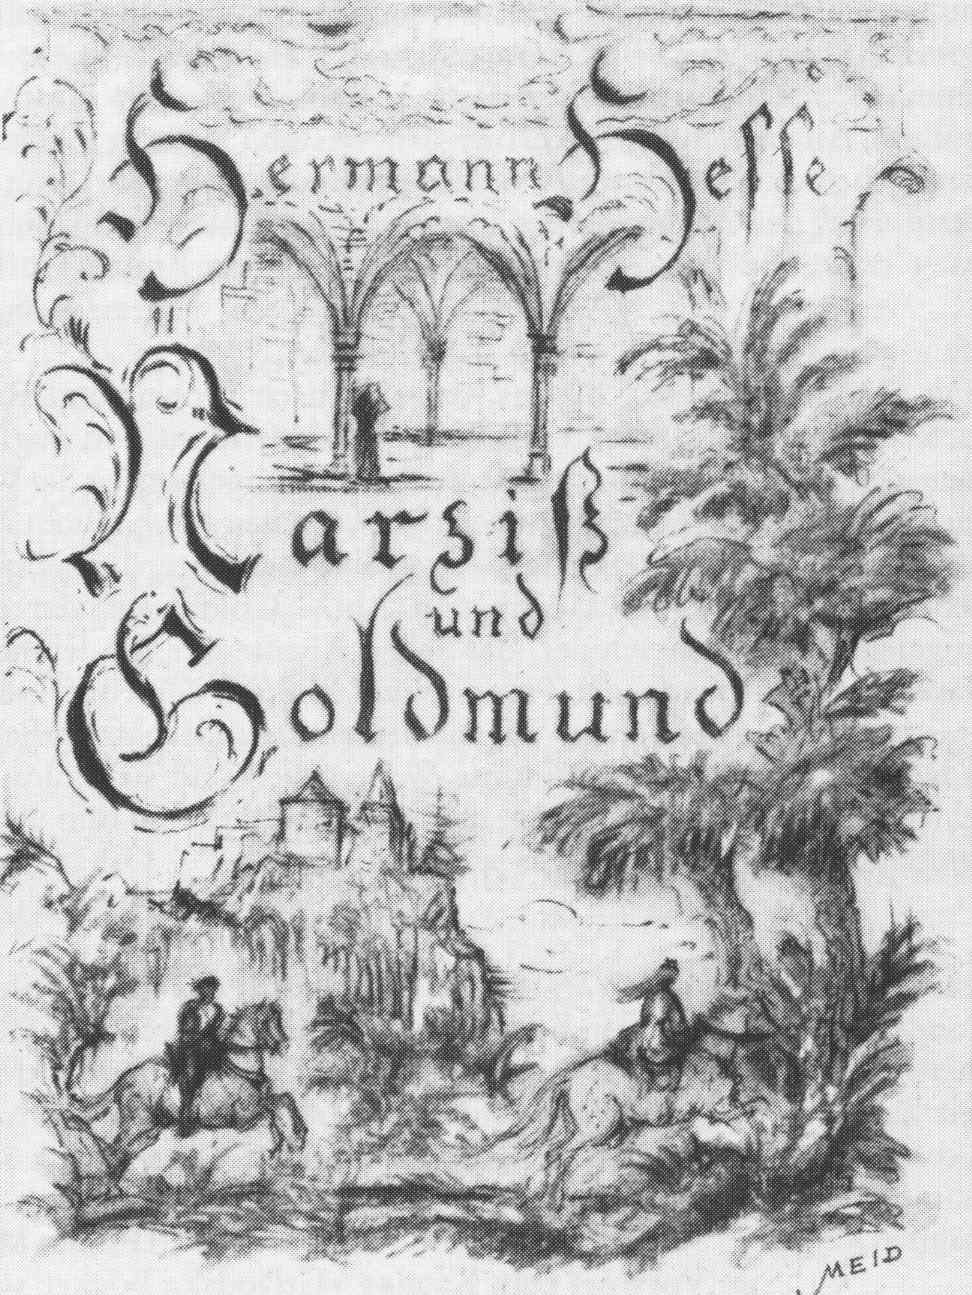 Hermann Hesse
Narziß
und
Goldmund
MEID